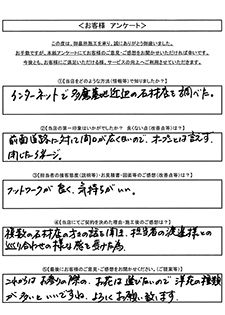 ＜お客様　アンケート＞
この度は、御墓所施工を承り、誠にありがとう御座いました。
お手数ですが、本紙アンケートにてお客様のご意見・ご感想をお聞かせいただければ幸いです。
今後とも、お客様にご満足いただける様、サービスの向上へご利用させていただきます。
【①当店をどのような方法（情報等）で知りましたか？】
インターネットで多磨墓地近辺の石材店を調べた。
【②当店の第一印象はいかがでしたか？　良くない点（改善点等）は？】
前面道路に対して間口が広くないので、オープンとは言えず、
閉じたイメージ。
【③担当者の接客態度（説明等）・お見積書・図面等のご感想（改善点等）は？】
フットワークが良く、気持ちがいい。
【④当店にてご契約を決めた理由・施工後のご感想は？】
複数の石材店の方々の話を聞き、担当者の渡邉様との
巡り合わせの様な感を受けた為。
【⑤最後にお客様のご意見・ご感想をお聞かせください。（ご提案等）】
これからはお参りの際の、お花は
洋花の種類
が多いといいですね。よろしくお願い致します。